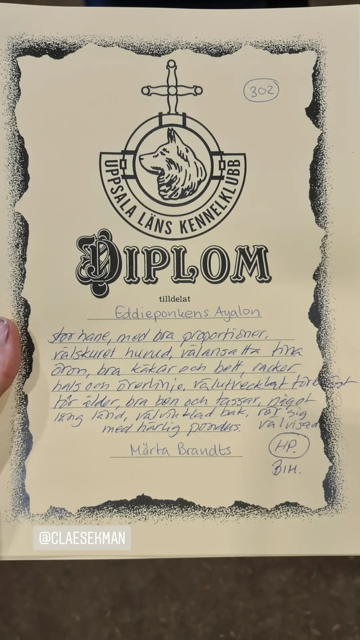 302
UPPSALA LÄNS KENNELKLUBB
DIPLOM
tilldelat
Eddieponkens Ayalon
stor hane, med bra proportioner,
välskuret huvud, välansatta fina
öron, bra käkar och bett, vacker
hals och överlinje, välutvecklat förbröst
för ålder, bra ben och tassar, något
lång länd, välvinklad bak, rör sig
med härlig pondus. välvisad
Märta Brandts
HP.
BIM.
@CLAESEKMAN